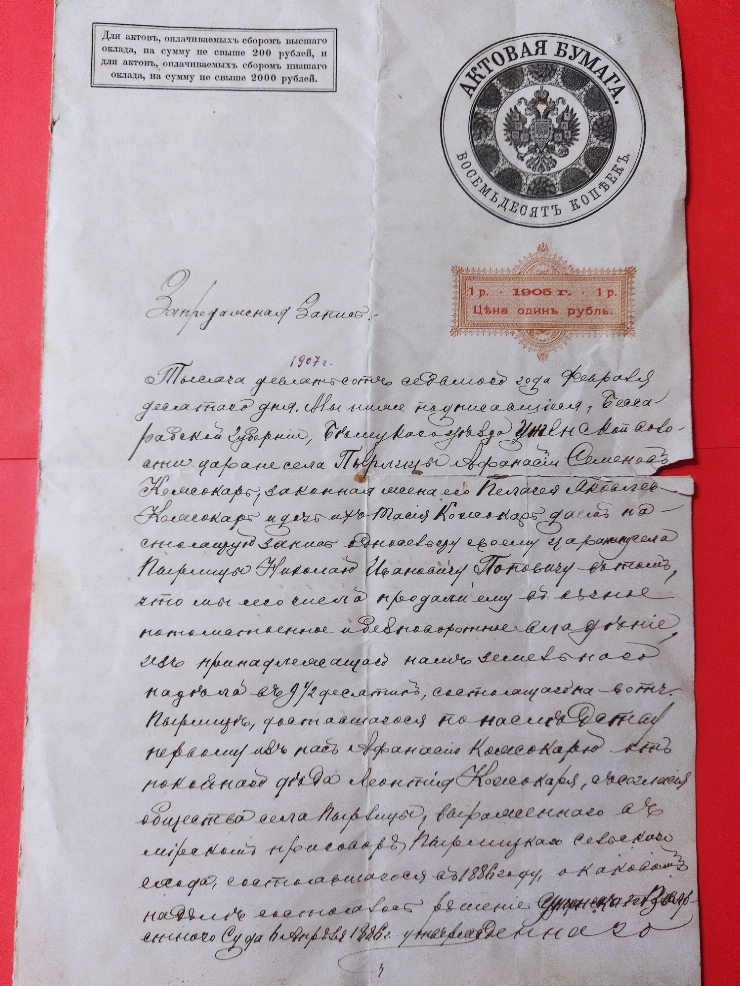 Для актовъ, оплачиваемыхъ сборомъ высшаго
оклада, на сумму не свыше 200 рублей, и
для актовъ, оплачиваемыхъ сборомъ низшаго
оклада, на сумму не свыше 2000 рублей.
АКТОВАЯ БУМАГА.
ВОСЕМЬДЕСЯТЪ КОПѢЕКЪ
1 р. - 1905 г. - 1 р.
Цѣна одинъ рубль.
Запродажная Запись.
1907 г.
Тысяча девятьсотъ седьмого года Февраля
десятого дня. Мы ниже подписавшіеся, Бесса
рабской Губерніи, Бѣлецкаго уѣзда волo
сти царане села Пырлицы Афанасій Семеновъ
Кожокарь, законная жена его Пелагея
Кожокарь и дочь ихъ Кожокарь даемъ на
стоящую запись односельцу своему царанину села
Пырлицы Николаю Ивановичу Поповичу въ томъ,
что мы сего числа продали ему въ вѣчное
потомственное и безповоротное владѣніе,
изъ принадлежащаго намъ земельнаго
надѣла въ 9 1/2 десятинъ, состоящаго на вотч.
Пырлицъ, доставшагося по наслѣдству
первому изъ насъ Афанасію Кожокарю отъ
покойнаго дѣда Леонтія Кожокаря, съ согласія
общества села Пырлицы, выраженнаго въ
мірскомъ приговорѣ Пырлицкаго сельскаго
схода, состоявшагося въ 1886 году, о каковомъ
надѣлѣ состоялось рѣшеніе
стного Суда 6 Апрѣля 1886 г. утвержденнаго